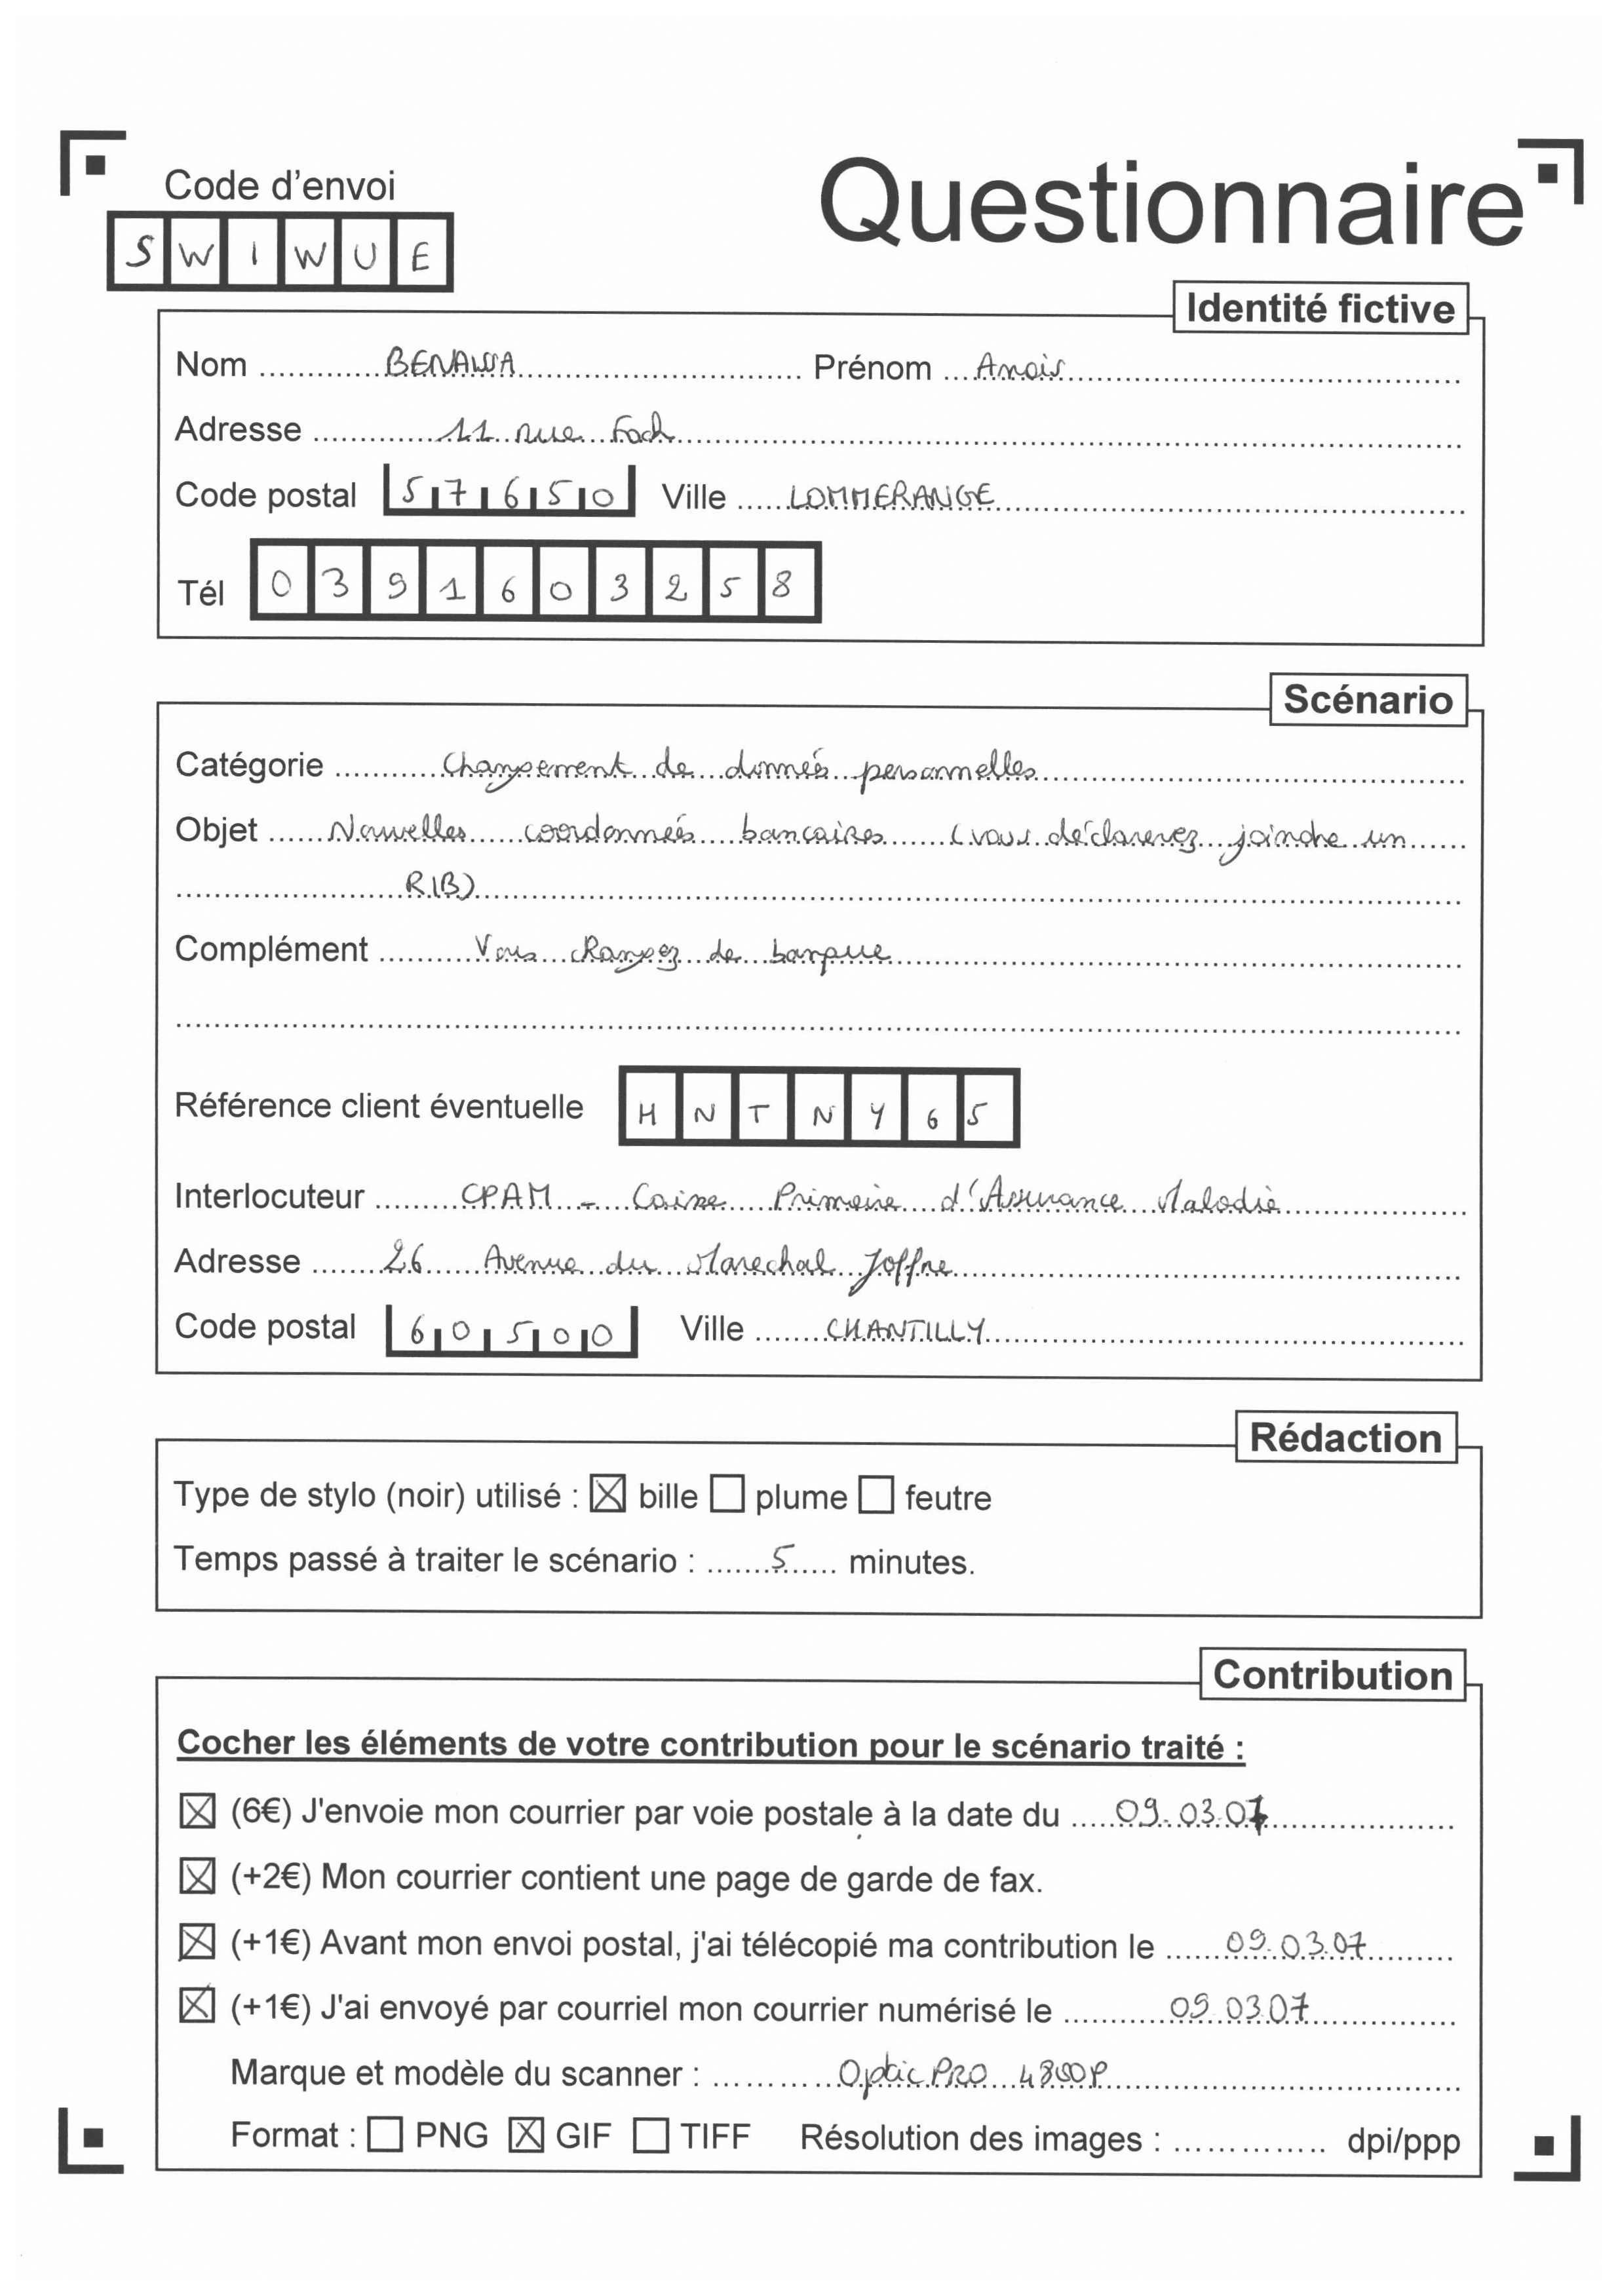 Code d'envoi
Questionnaire
S W I W U E
Identité fictive
Nom Prénom Anais
Adresse 11 rue Foch
Code postal 57650 Ville LOMMERANGE
Tél 0391603258
Scénario
Catégorie Changement de données personnelles
Objet Nouvelles coordonnées bancaires (vous déclarerez joindre un
RIB)
Complément Vous changez de banque
Référence client éventuelle HNTNY65
Interlocuteur CPAM - Caisse Primaire d'Assurance Maladie
Adresse 26 Avenue du Marechal Joffre
Code postal 60500 Ville CHANTILLY
Rédaction
Type de stylo (noir) utilisé : ☒ bille ☐ plume ☐ feutre
Temps passé à traiter le scénario : 5 minutes.
Contribution
Cocher les éléments de votre contribution pour le scénario traité :
☒ (6€) J'envoie mon courrier par voie postale à la date du 09.03.07
☒ (+2€) Mon courrier contient une page de garde de fax.
☒ (+1€) Avant mon envoi postal, j'ai télécopié ma contribution le 09.03.07
☒ (+1€) J'ai envoyé par courriel mon courrier numérisé le 09.03.07
Marque et modèle du scanner : OpticPRO 4800P
Format : ☐ PNG ☒ GIF ☐ TIFF Résolution des images : .............. dpi/ppp